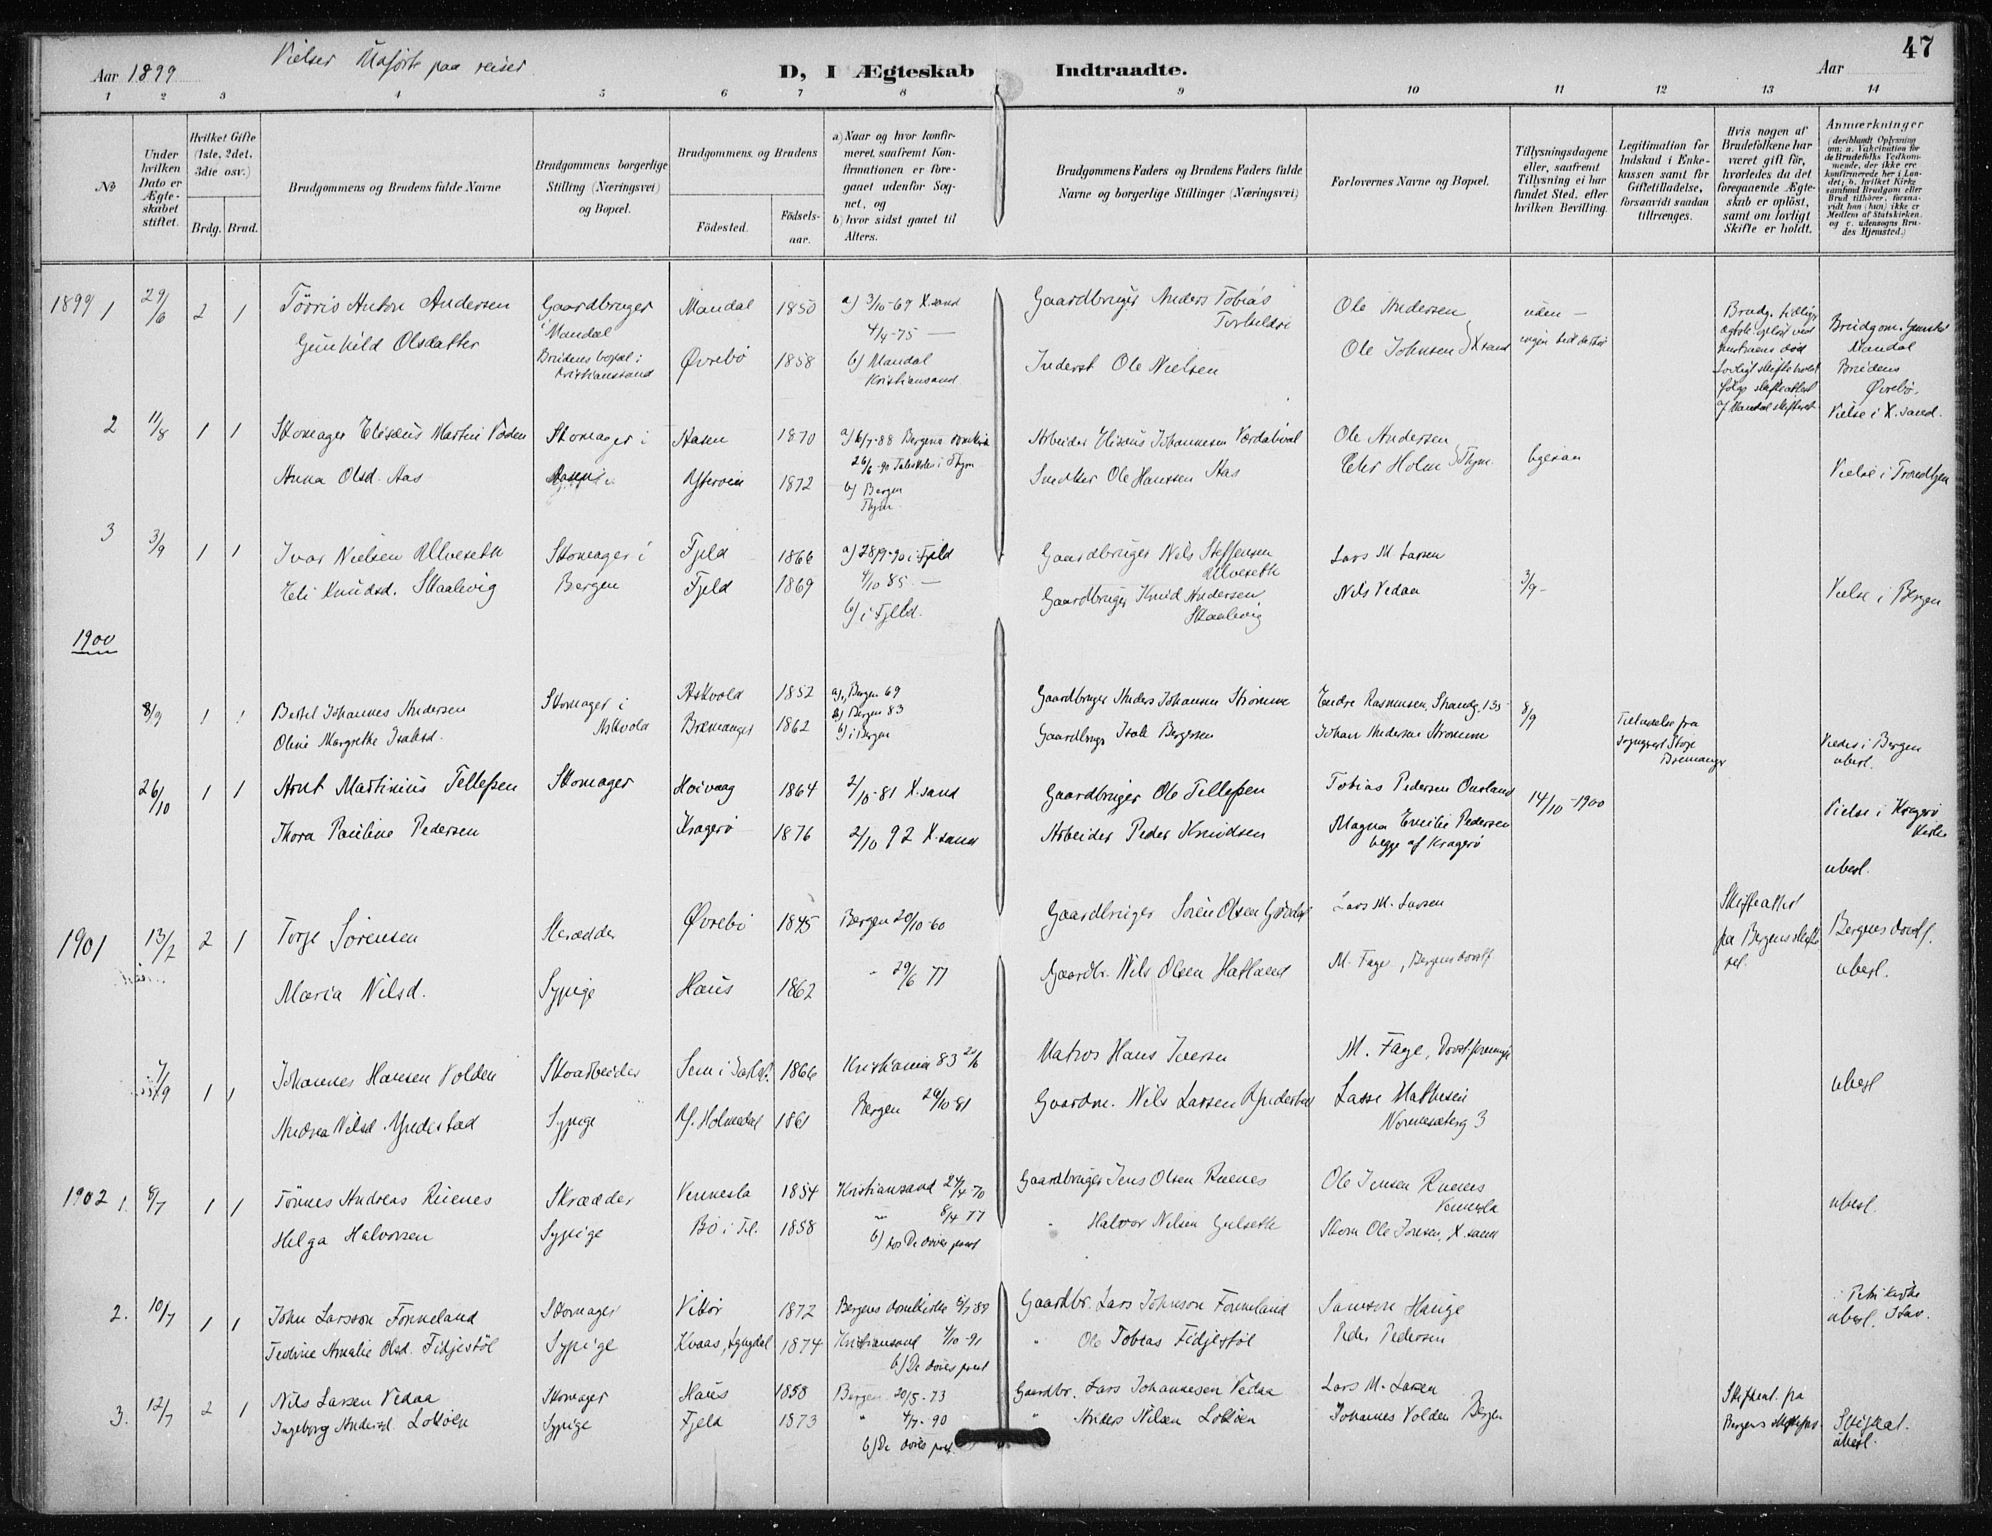 Aar 1899
Vielser paa reiser
D, I Ægteskab Indtraadte.
Aar
47
1 2 3 4 5 6 7 8 9 10 11 12 13 14
№
Under hvilken Dato er Ægteskabet stiftet.
Hvilket Gifte (1ste, 2det, 3die osv.)
Brdg. Brud.
Brudgommens og Brudens fulde Navne
Brudgommens borgerlige Stilling (Næringsvei) og Bopæl.
Brudgommens og Brudens
Fødested.
Fødselsaar.
a) Naar og hvor konfirmeret, saafremt Konfirmationen er foregaaet udenfor Sognet, og
b) hvor sidst gaaet til Alters.
Brudgommens Faders og Brudens Faders fulde Navne og borgerlige Stillinger (Næringsvei)
Forlovernes Navne og Bopæl.
Tillysningsdagene eller, saafremt Tillysning ei har fundet Sted, efter hvilken Bevilling.
Legitimation for Indskud i Enkekassen samt for Giftetilladelse, forsaavidt saadan tiltrænges.
Hvis nogen af Brudefolkene har været gift før, hvorledes da det foregaaende Ægteskab er opløst, samt om lovligt Skifte er holdt.
Anmærkninger (deriblandt Oplysning om: a. Vakcination for de Brudefolks Vedkommende, der ikke ere konfirmerede her i Landet; b. hvilket Kirkesamfund Brudgom eller Brud tilhører, forsaavidt han (hun) ikke er Medlem af Statskirken, og c. udensogns Brudes Hjemsted.)
1899 1 29/6 2 1 Tørris Anton Andersen Gaardbruger i Mandal Mandal 1850 a) 3/10-69 X.sand Gaardbruger Anders Tobias Ole Andersen uden
Gunhild Olsdatter Brudens bopæl: Kristianssand Øvrebø 1858 4/4-75 — Inderst Ole Nielsen Ole Johnsen X.sand
b) Mandal Kristiansand
Brudgom. Mandal Brudens Øvrebø.
Vielse i X.sand.
2 11/8 1 1 Skomager Eliseus Martin Skomager i Aasen 1870 a) 6/7-88 Bergens Arbeider Eliseus Johannesen Ole Andersen ligesaa
Anna Olsd. Aas Ytterøen 1872 26/6-90 Ole Hanssen Aas Holm Thjm.
b) Bergen Thjm.
Vielse i Trondhjem
3 3/9 1 1 Ivar Nielsen Ulveseth Skomager i Fjeld 1866 a) 28/9-90 i Fjeld Gaardbruger Nils Steffensen Ulveseth Lars M. Larsen
Eli Knudsd. Skaalevig Bergen Fjeld 1869 4/10 85 — Gaardbruger Knud Andersen Skaalevig Nils Vedaa 3/9-
b) i Fjeld.
Vielse i Bergen
1900
8/9 1 1 Bertel Johannes Andersen Skomager i Askvold Askvold 1852 a) Bergen 69 Gaardbruger Anders Johannsen Strømme Endre Rasmussen, Strandg. 135 8/9 Tilladelse fra
Oline Margrethe Isaksd. Bremanger 1862 Bergen 83 Gaardbrugr Isak Bergesen Johan Anderson Strømme Bremanger
b) i Bergen
Viedes i Bergen ubesl.
26/10 1 1 Arnt Martinius Tellefsen Skomager Høivaag 1864 2/10-81 X.sand Gaardbruger Ole Tellefsen Tobias Pedersen 14/10-1900
Thora Pauline Pedersen Kragerø 1876 2/10 92 X.sand Arbeider Peder Knudsen Magna Emilie Pedersen begge af Kragerø
Vielse i Kragerø Kirke
ubesl.
1901 13/2 2 1 Torje Sørensen Skrædder Øvrebø 1845 Bergen 20/10-60 Gaardbruger Søren Olsen Lars M. Larsen
Maria Nilsd. Sypige Haus 1862 " 29/6 77 Gaardbr. Nils Olsen Hatland M. Fage, Bergens
Skifteattest fra Bergens
ubesl.
7/9 1 1 Johannes Hansen Volden Skoarbeider Sem i Jarlsb. 1866 Kristiania 83 Matros Hans Iversen M. Fage,
Andrea Nilsd. Yndestad Sypige Y. Holmedal 1861 Bergen 20/10 81 Gaardm. Nils Larsen Yndestad Lasse Mathesen 3
ubesl
1902 1. 8/7 1 1 Tønnes Andreas Ruenes Skrædder Vennesla 1854 Kristianssand 24/4-70 Gaardbruger Jens Olsen Ruenes Ole Jensen Ruenes Vennesla
Helga Halvorsen Sypige Bø i Tel. 1858 " 8/4 77 " Halvor Nilsen Gulseth Skom Ole Jonsen, X.sand
b) hos De døves prest
ubesl.
2. 10/7 1 1 John Larsson Fønneland Skomager Vikør 1872 Bergens domkirke Gaardbr. Lars Johnson Fønneland Samson Hauge
Tedine Amalie Olsd. Fidjestøl Sypige Kvaas, Lyngdal 1874 Kristianssand 4/10-91 " Ole Tobias Fidjestøl Peder Pedersen
b) De døves prest
Petri kirke ubesl. Stav.
3. 12/7 2 1 Nils Larsen Vedaa Skomager Haus 1858 Bergen 20/5-73 Gaardbr. Lars Johannesen Vedaa Lars M. Larsen
Ingeborg Andersd. Loktøen Sypige Fjeld 1873 " 4/7-90 " Anders Nilsen Loktøen Johannes Volden Bergen
b) De døves prest.
Skifteat. fra Bergens
ubesl.